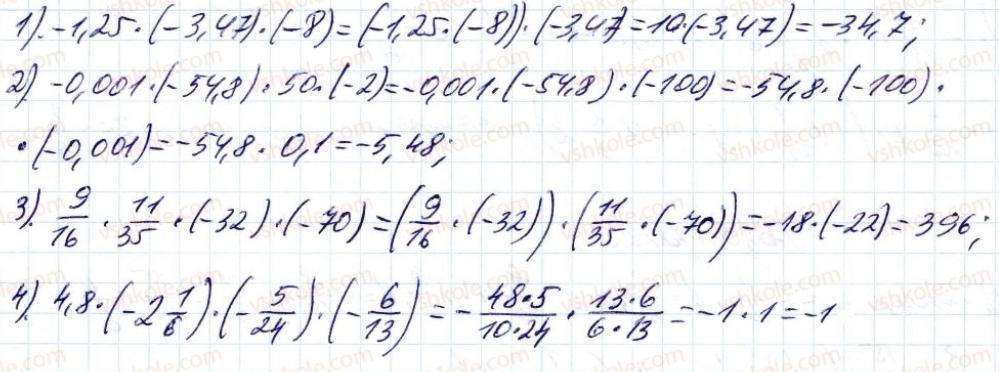 1). -1,25 · (-3,47) · (-8) = (-1,25 · (-8)) · (-3,47) = 10 · (-3,47) = -34,7;
2) -0,001 · (-54,8) · 50 · (-2) = -0,001 · (-54,8) · (-100) = -54,8 · (-100) ·
· (-0,001) = -54,8 · 0,1 = -5,48;
3). 9/16 · 11/35 · (-32) · (-70) = (9/16 · (-32)) · (11/35 · (-70)) = -18 · (-22) = 396;
4). 4,8 · (-2 1/6) · (-5/24) · (-6/13) = - 48·5/10·24 · 13·6/6·13 = -1 · 1 = -1
vshkole.com